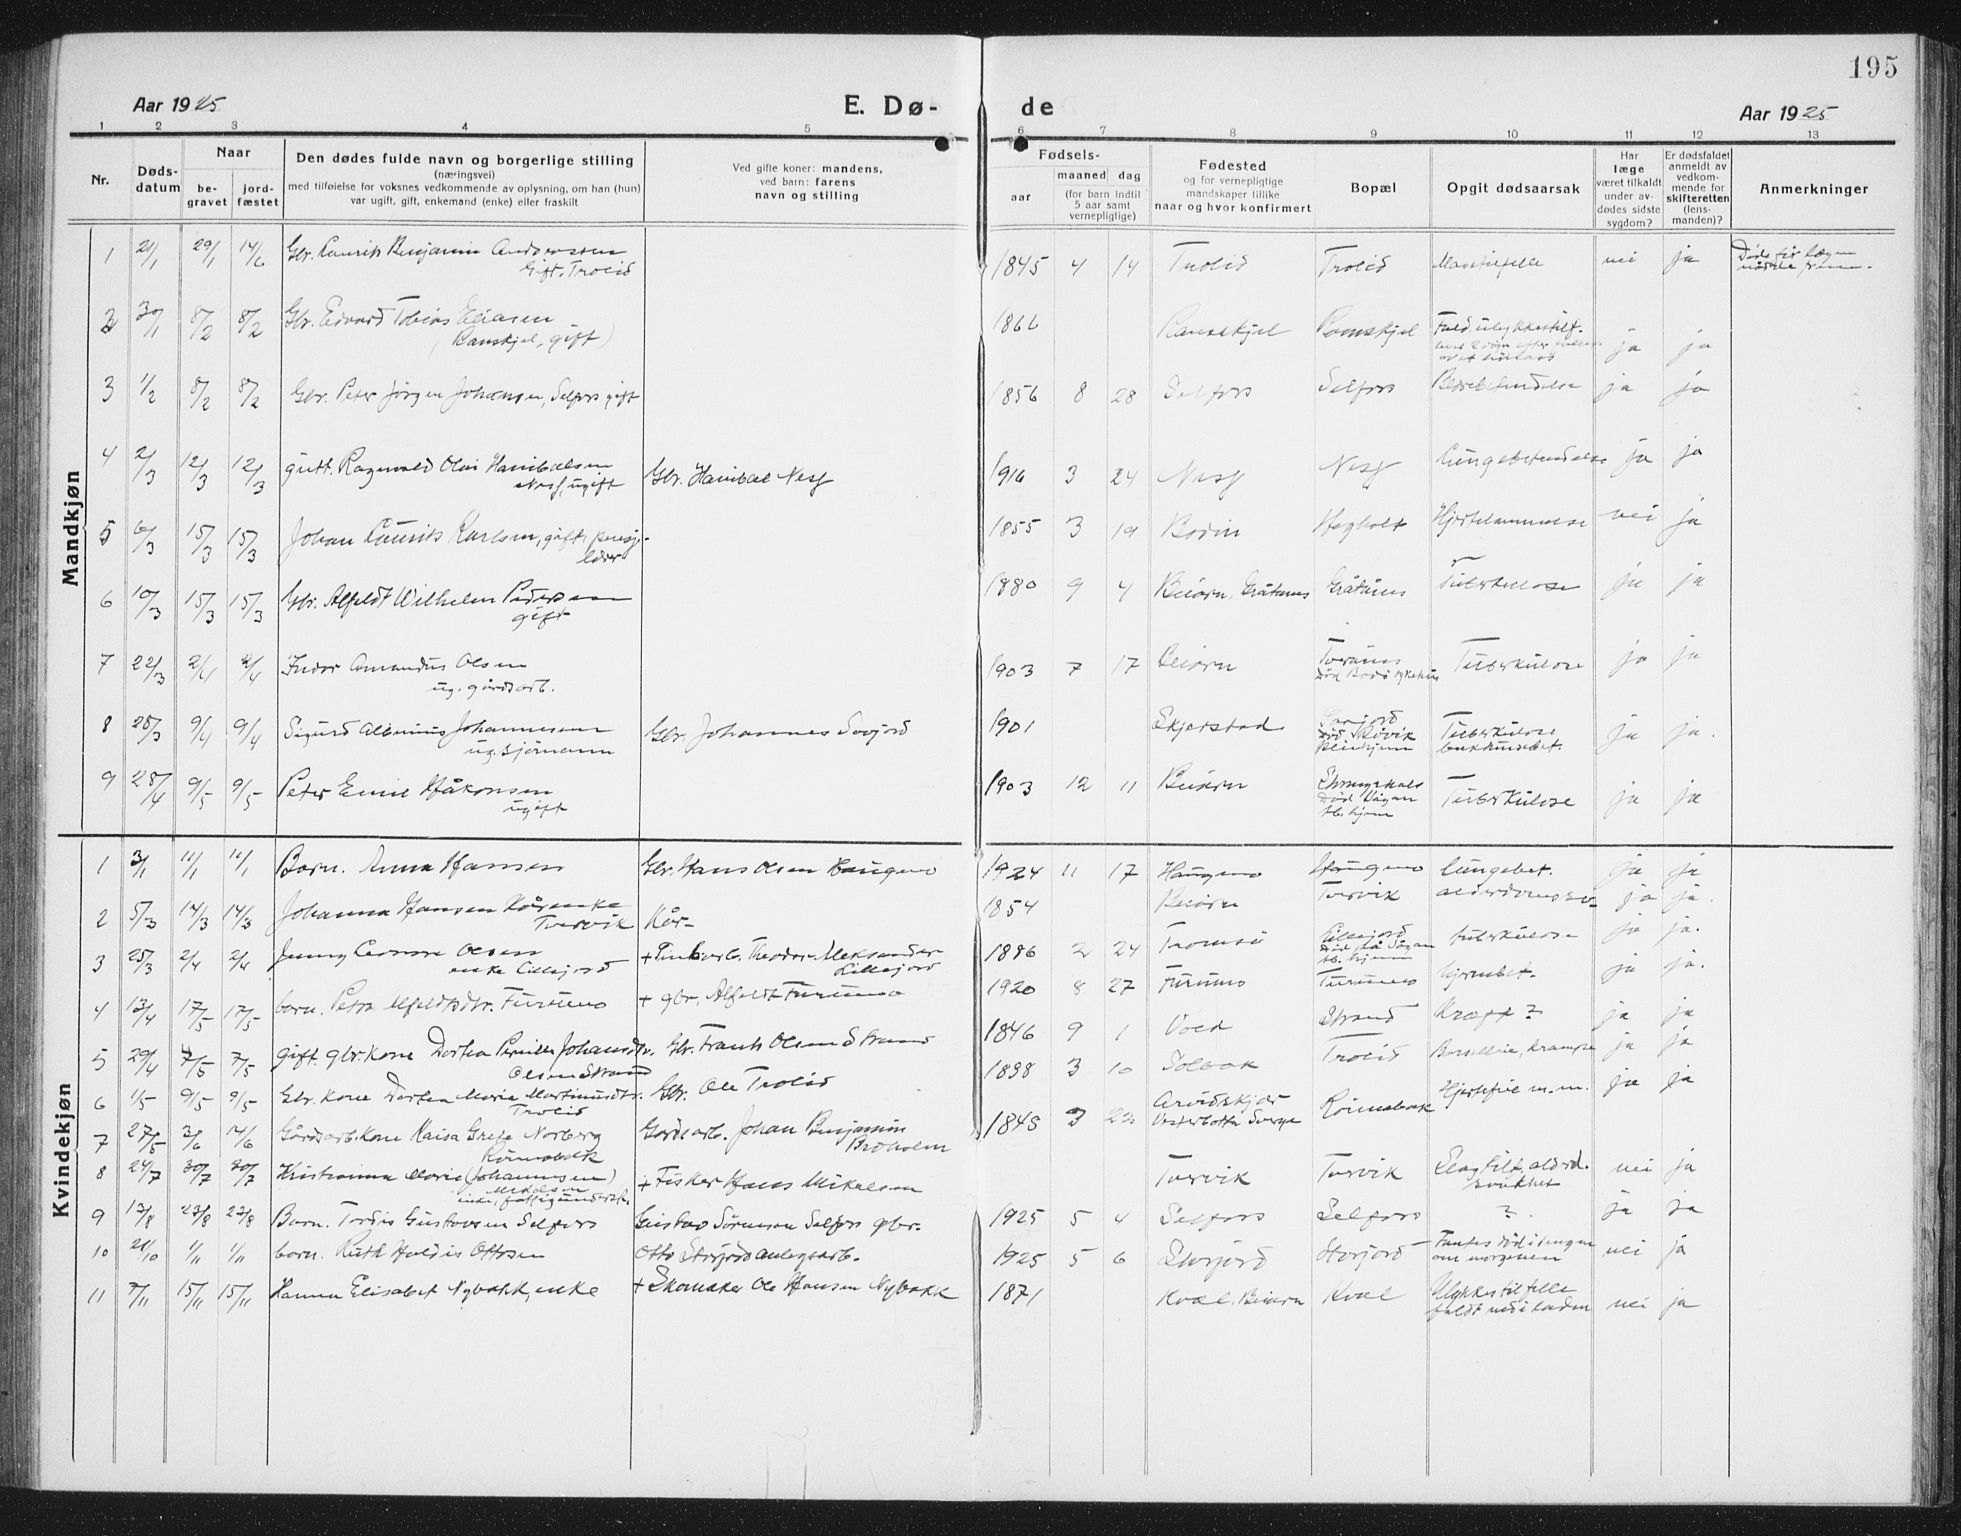 195
Aar 1925
E. Dø-
de
Aar 1925
1 2 3 4 5 6 7 8 9 10 11 12 13
Nr.
Døds-
datum
Naar
be-
gravet
jord-
fæstet
Den dødes fulde navn og borgerlige stilling
(næringsvei)
med tilføielse for voksnes vedkommende av oplysning, om han (hun)
var ugift, gift, enkemand (enke) eller fraskilt
Ved gifte koner: mandens,
ved barn: farens
navn og stilling
Fødsels-
aar
maaned dag
(for barn indtil
5 aar samt
vernepligtige)
Fødested
og for vernepligtige
mandskaper tillike
naar og hvor konfirmert
Bopæl
Opgit dødsaarsak
Har
læge
været tilkaldt
under av-
dødes sidste
sygdom?
Er dødsfaldet
anmeldt av
vedkom-
mende for
skifteretten
(lens-
manden)?
Anmerkninger
Mandkjøn
1 29/1 14/6 Gbr. Laurits Benjamin Anderssen
Gift. Trolid
1845 4 14 Trolid Trolid nei ja Døde før lægen
2 30/1 8/2 8/2 Gbr. Edvard Tobias Eliasen
(Ramskjel, gift)
Ramskjel Ramskjel ja ja
3 1/2 8/2 8/2 Gbr. Peter Jørgen Johansen, Selfors gift
1856 8 28 Selfors Selfors ja ja
4 2/3 12/3 12/3 gutt. Ragnvald Olai Hanibalsen
Nesj, ugift
Gbr. Hanibal Nesj
1916 3 24 Nesj Nesj Lungebetendelse ja ja
5 6/3 15/3 15/3 Johan Laurits Karlsen, gift,
1855 3 19 Bodin Hjertelammelse nei ja
6 10/3 15/3 15/3 Gbr. Alfeldt Wilhelm Pedersen
gift
1880 9 4 Beiarn, Gråtånes Gråtånes Tuberkulose ja ja
7 22/3 2/4 2/4 Indor Amandus Olsen
ug. gårdsarb.
1903 7 17 Beiarn
død Bodø sykehus
Tuberkulose ja ja
8 9/4 9/4 Sigurd Albinius Johannesen
ug. sjømann
Gbr. Johannes Soojord
1901 Skjerstad
Tuberkulose
ja ja.
9 28/4 9/5 9/5 Peter Emil Håkonsen
ugift
1903 12 11 Beiarn
Tuberkulose ja ja
Kvindekjøn
1 3/1 11/1 11/1 Barn. Anna Hansen Gbr. Hans Olsen Haugmo
1924 11 17 Haugmo Haugmo Lungebet. ja ja
2 5/3 14/3 14/3 Johanna Hansen Kårenke
Tvervik
Kår-
1854 Beiarn Tvervik ja ja.
3 25/3 2/4 2/4 Jenny Olsen
enke Lillejord
Theodor Aleksander
Lillejord
1886 2 24 Tromsø Lillejord
tuberkulose ja ja.
4 13/4 17/5 17/5 barn. Petra Alfeldtsdtr. Furumo + gbr. Alfeldt Furumo
1920 8 27 Furumo Furumo hjernbet. ja ja.
5 29/4 7/5 7/5 gift gbr.kone Dortea Pernille Johansdtr.
Olsen Strand
Gbr. Frants Olsen Strand
1846 9 1 Strand Kræft? ja ja
6 1/5 9/5 9/5 Gbr. kone Dortea Marie Martinusdtr.
Trolid
Gbr. Ole Trolid
1898 3 10 Solbak Trolid ja ja
7 27/5 3/6 14/6 Gårdsarb. kone Kaisa Greta Norberg
Gårdsarb. Johan Benjamin
Broholm
3 ja ja
8 24/7 30/7 30/7 Kristianna Marie (Johannesen)
Mikalsen
+ Fisker Hans Mikalsen
Tvervik Tvervik nei ja
9 17/8 23/8 23/8 Barn. Tordis Gustavsen Selfors Gustav Sørensen Selfors gbr.
1925 5 4 Selfors Selfors ? ja ja
10 1/11 1/11 barn. Ruth Haldis Ottosen Otto Storjord anlegsarb.
1925 5 6 Storjord Storjord Funtes død i sengen
om morgenen
nei ja
11 7/11 15/11 15/11 Hanna Elisabet Nybakk, enke + Skomaker Ole Hansen Nybakk
1871 Kvæl, Beiarn Kvæl Ulykkestilfelle
faldt ned i laaden
nei ja